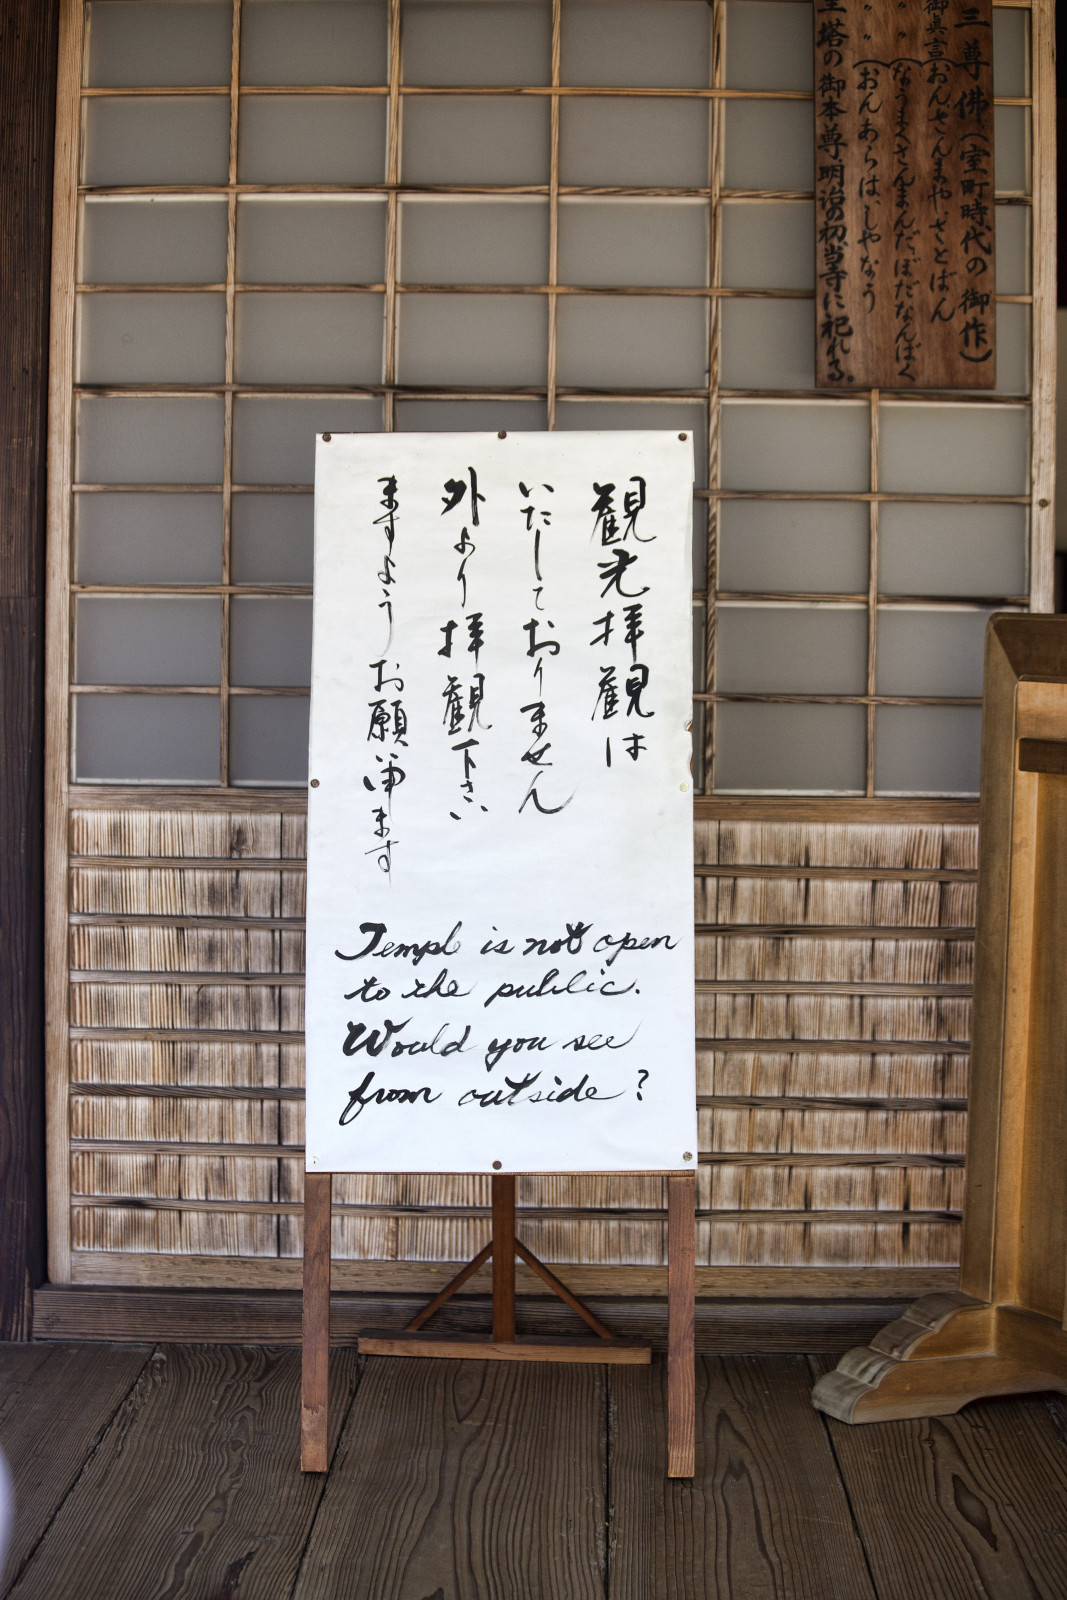 三尊佛(室町時代の御作)
御眞言(おんさんまや、さとばん
〃 〃 (なうまくさんまんだ、ぼだなんばく
〃 〃 (おんあらはしやなう
塔の御本尊、明治の初、当寺に祀れる。
観光拝観は
いたしておりません
外より拝観下さい
ますようお願い申ます
Temple is not open
to the public.
Would you see
from outside?